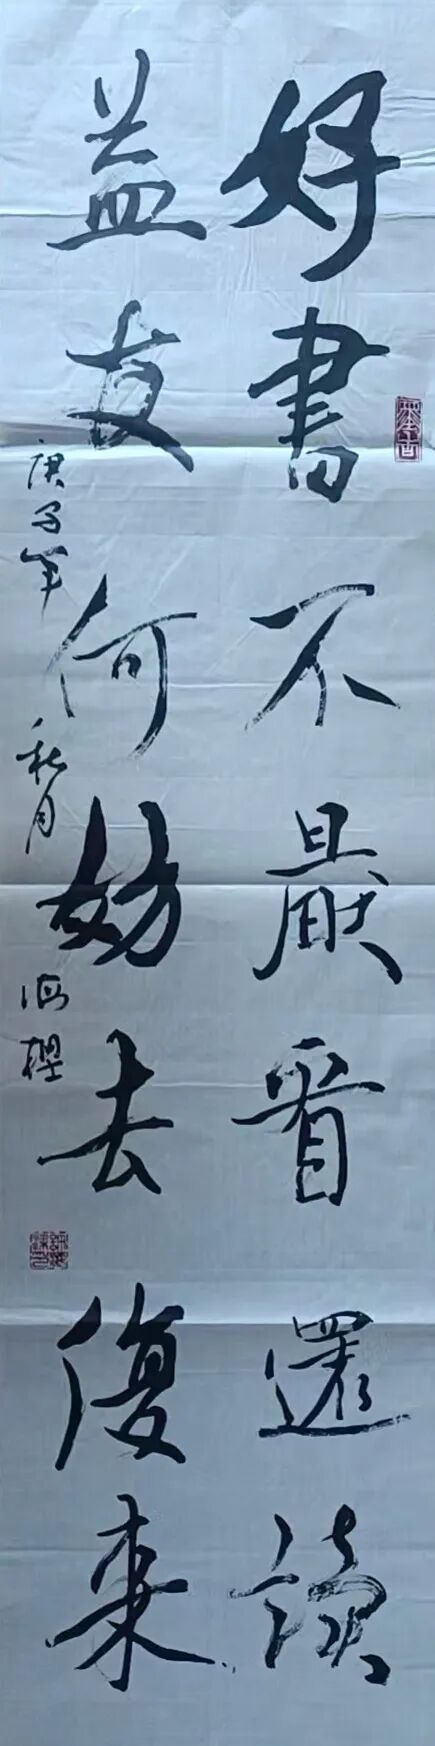 好書不厭看還讀
益友何妨去復來
庚子年秋月海